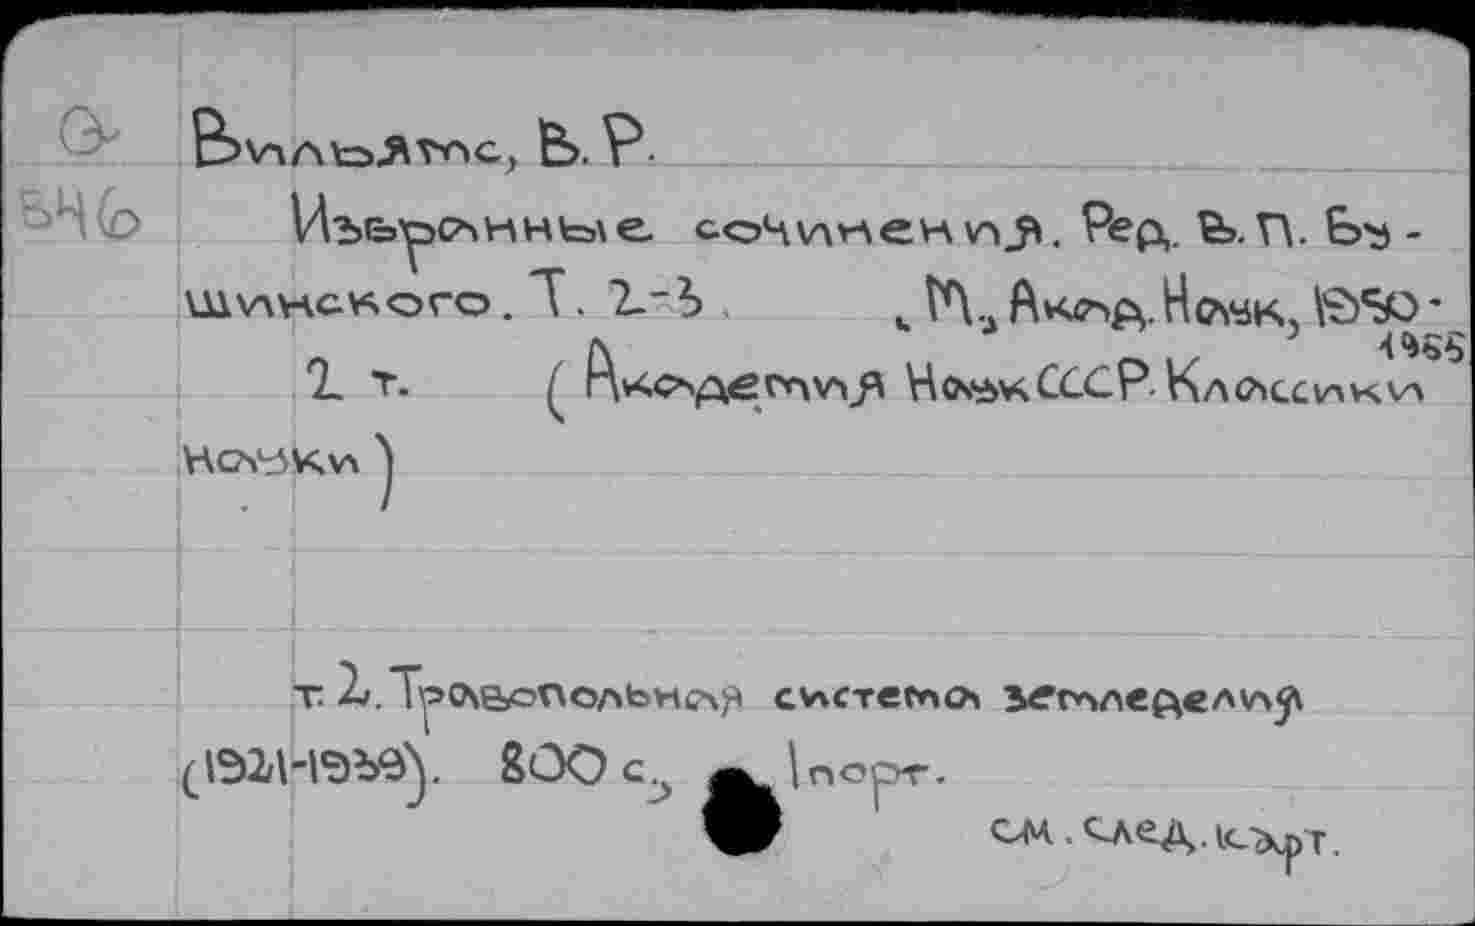 Вильямс, В. Р.
Избранные сочинения. Ред. В. П. Бу-
шинского. Т. 2-3. М., Акад. Наук, 1950-
1955
2 т. (Академия Наук СССР. Классики
науки)
т. 2. Травопольная система земледелия
(1921-1939). 800 с., 1 порт.
см. след. карт.